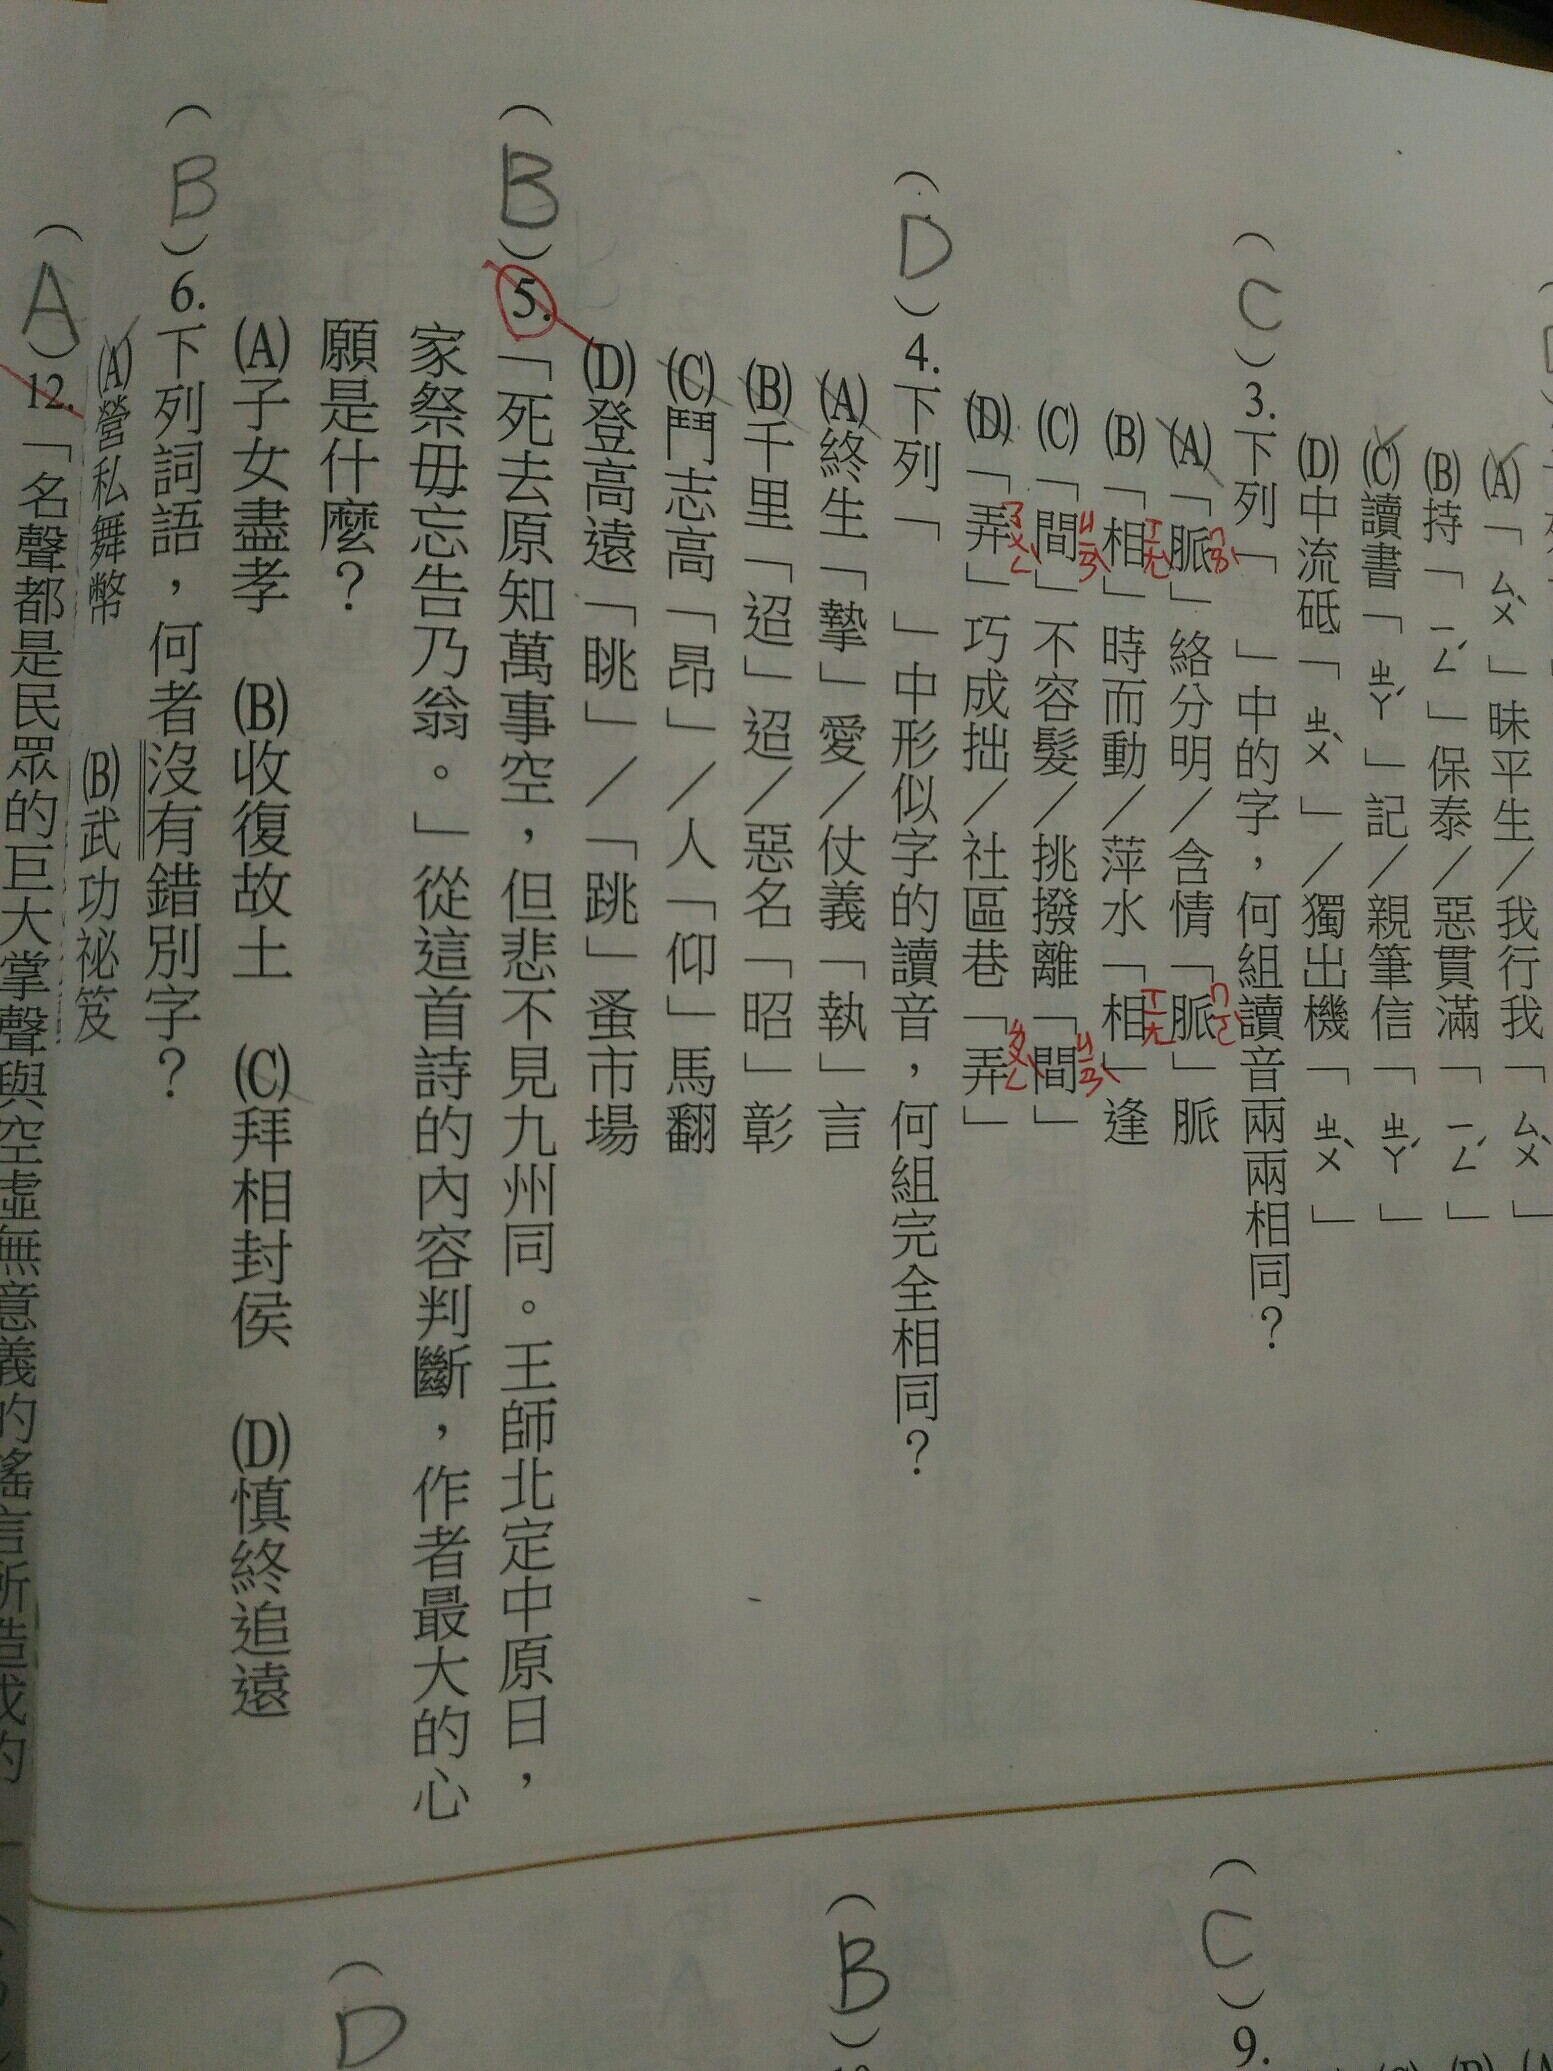 (A)「ㄙㄨˋ」昧平生/我行我「ㄙㄨˋ」
(B)持「ㄧㄥˊ」保泰/惡貫滿「ㄧㄥˊ」
(C)讀書「ㄓㄚˊ」記/親筆信「ㄓㄚˊ」
(D)中流砥「ㄓㄨˋ」/獨出機「ㄓㄨˋ」
(C)3.下列「 」中的字,何組讀音兩兩相同?
(A)「脈ㄇㄛˋ」絡分明/含情「脈ㄇㄛˋ」脈
(B)「相ㄒㄧㄤ」時而動/萍水「相ㄒㄧㄤ」逢
(C)「間ㄐㄧㄢˋ」不容髮/挑撥離「間ㄐㄧㄢˋ」
(D)「弄ㄋㄨㄥˋ」巧成拙/社區巷「弄ㄌㄨㄥˋ」
(D)4.下列「 」中形似字的讀音,何組完全相同?
(A)終生「摯」愛/仗義「執」言
(B)千里「迢」迢/惡名「昭」彰
(C)鬥志高「昂」/人「仰」馬翻
(D)登高遠「眺」/「跳」蚤市場
(B)5.「死去原知萬事空,但悲不見九州同。王師北定中原日,
家祭毋忘告乃翁。」從這首詩的內容判斷,作者最大的心
願是什麼?
(A)子女盡孝 (B)收復故土 (C)拜相封侯 (D)慎終追遠
(B)6.下列詞語,何者沒有錯別字?
(A)營私舞幣 (B)武功祕笈
(A)12.「名聲都是民眾的巨大掌聲與空虛無意義的謠言所造成的
(C)9.
(B)
(D